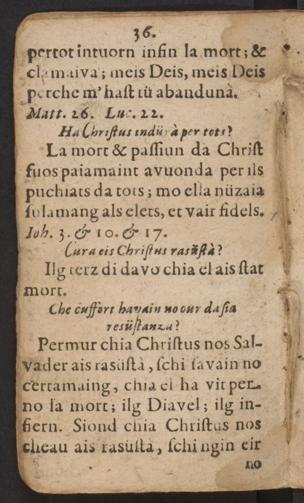 36.
pertot intuorn infin la mort; &
clamaiva; meis Deis, meis Deis
perche m' hast tü abandunà.
Matt. 26. Luc. 22.
Ha Christus indürà per tots?
La mort & passiun da Christ
fuos paiamaint avuonda per ils
puchiats da tots; mo ella nüzaia
sulamang als elets, et vair fidels.
Ioh. 3. & 10. & 17.
Cura eis Christus rasüstà?
Ilg terz di davo chia el ais stat
mort.
Che cuffört havain no our da sia
resüstanza?
Permur chia Christus nos Sal-
vader ais rasüstà, schi savain no
certamaing, chia el ha vit per
no la mort; ilg Diavel; ilg in-
fiern. Siond chia Christus nos
cheau ais rasüstà, schi ngin eir
no